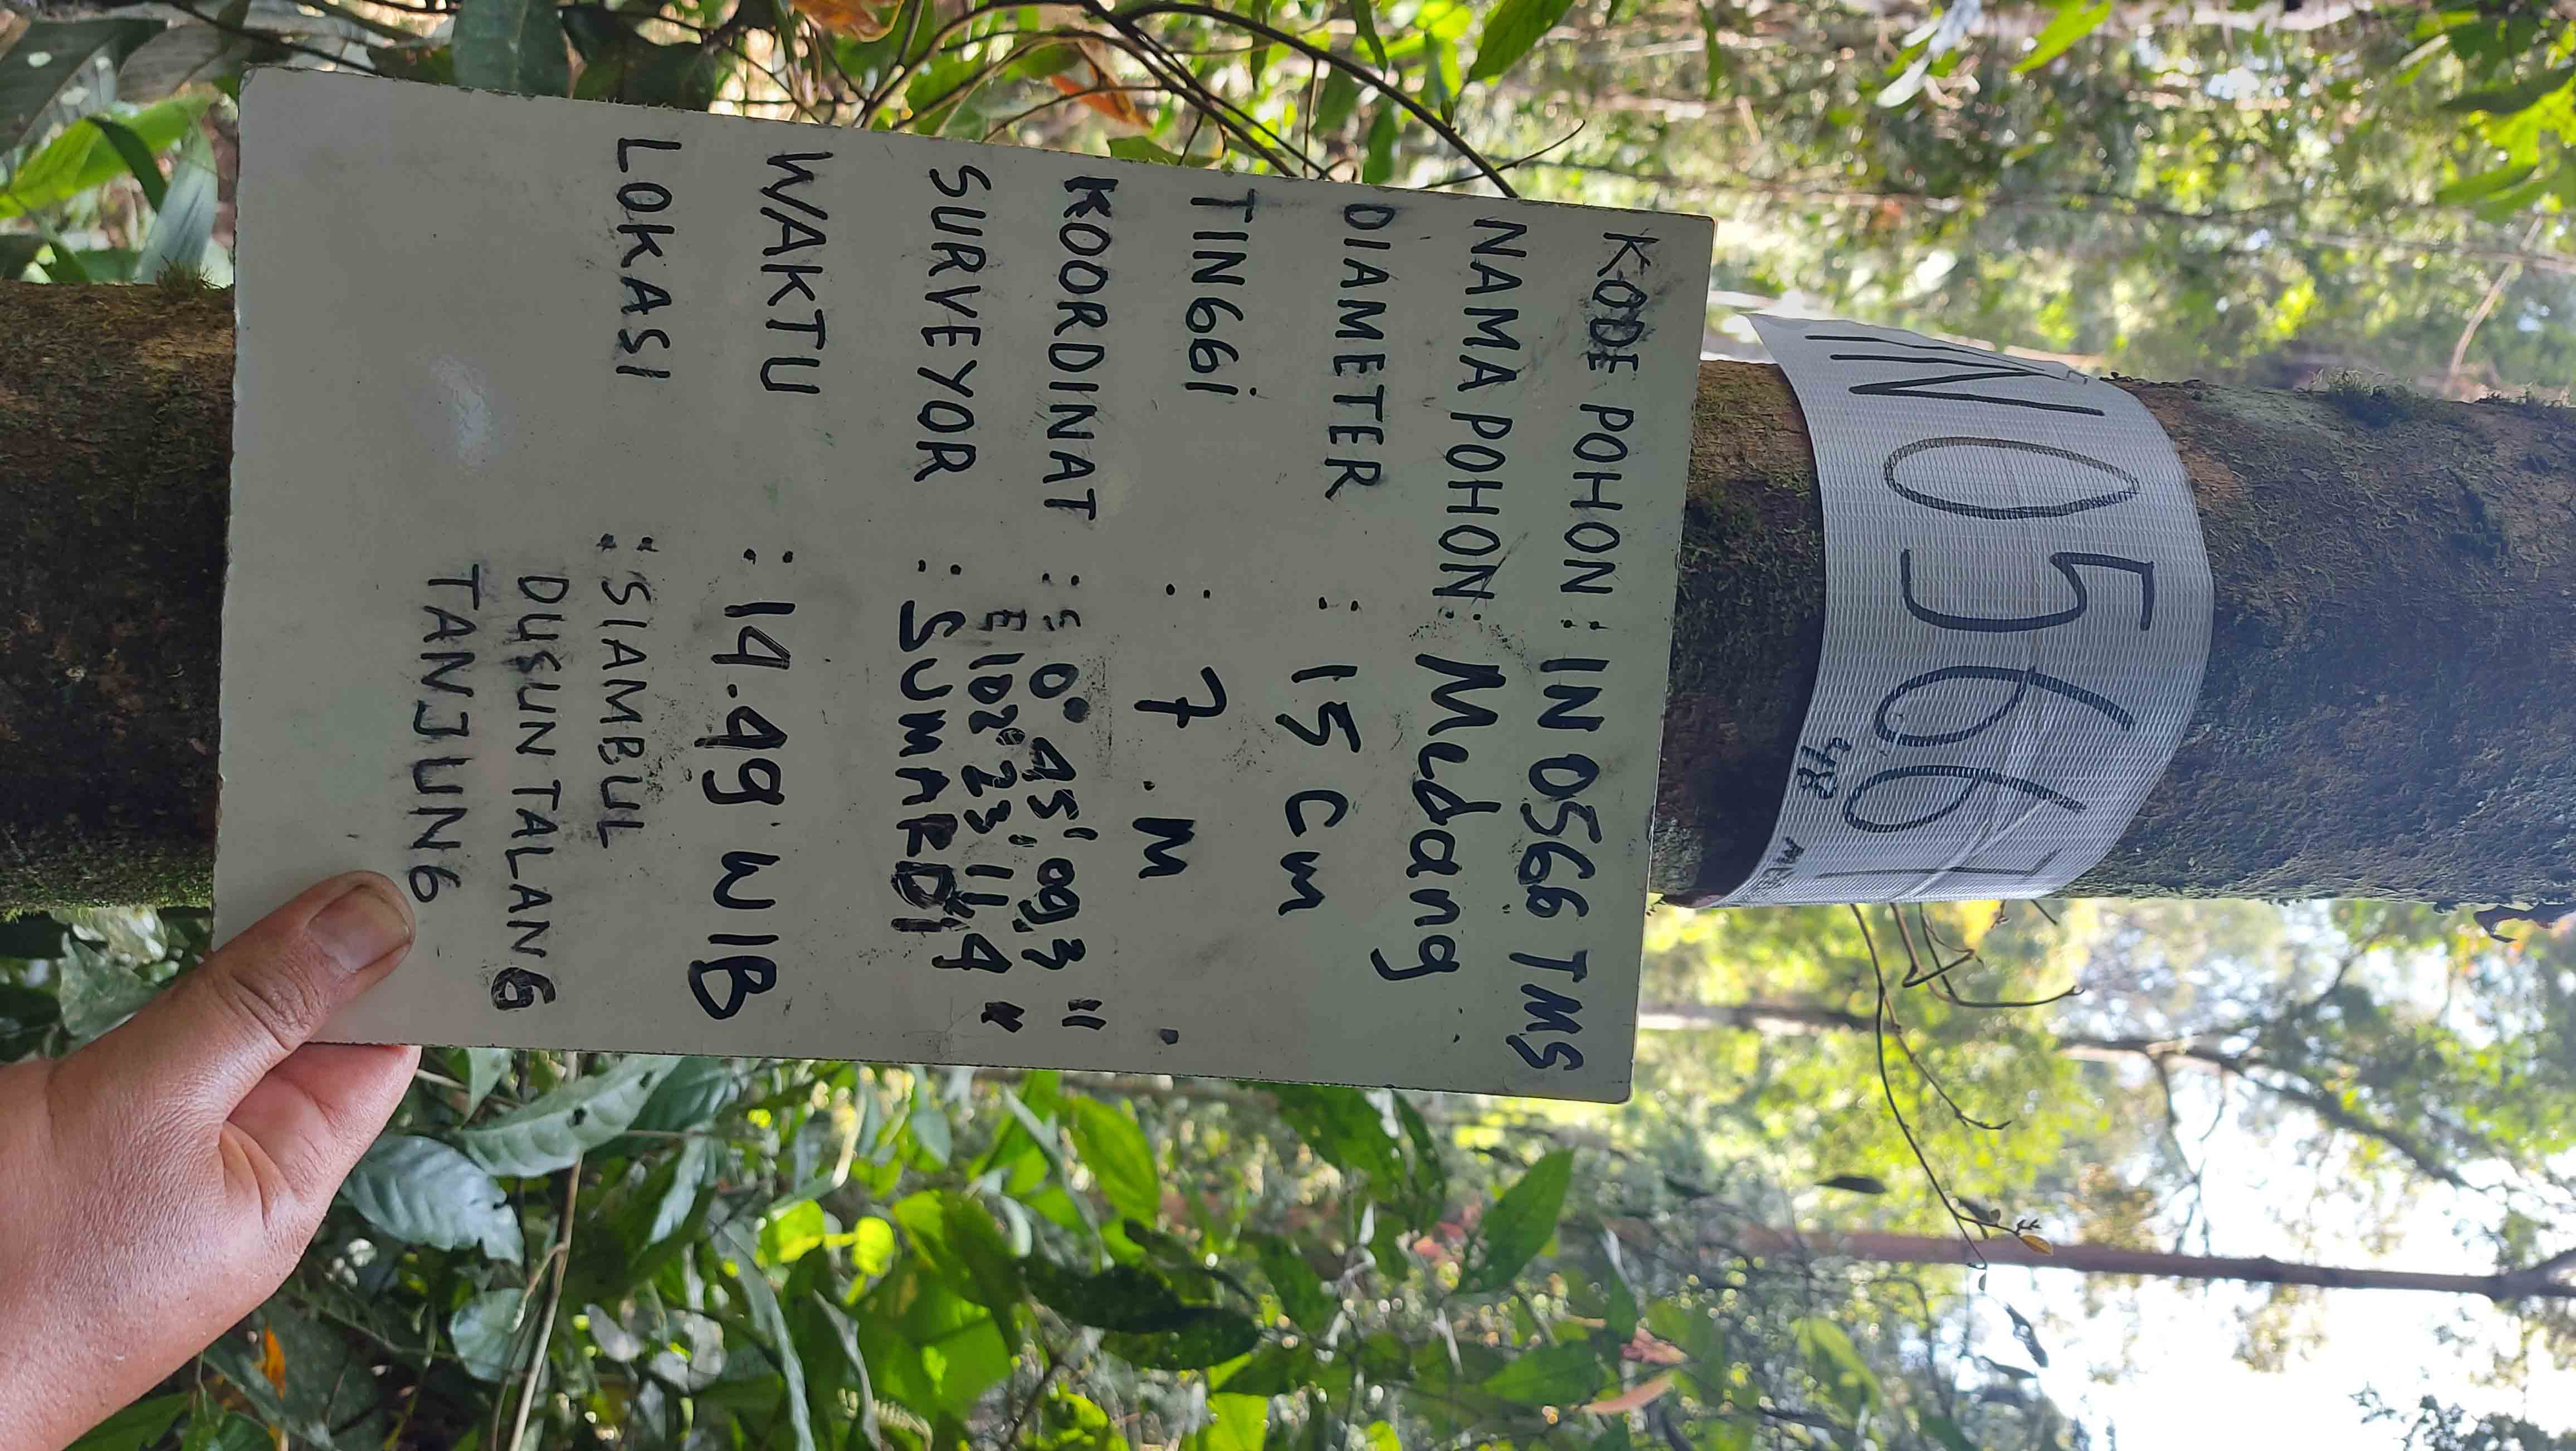 KODE POHON : IN 0566 TMS
NAMA POHON : Medang
DIAMETER : 15 cm
TINGGI : 7 . M
KOORDINAT : S 0° 45' 09,3 "
E 102° 23' 11,4 "
SURVEYOR : SUMARDI
WAKTU : 14.49 WIB
LOKASI : SIAMBUL
DUSUN TALANG
TANJUNG
IN 0566 T
48